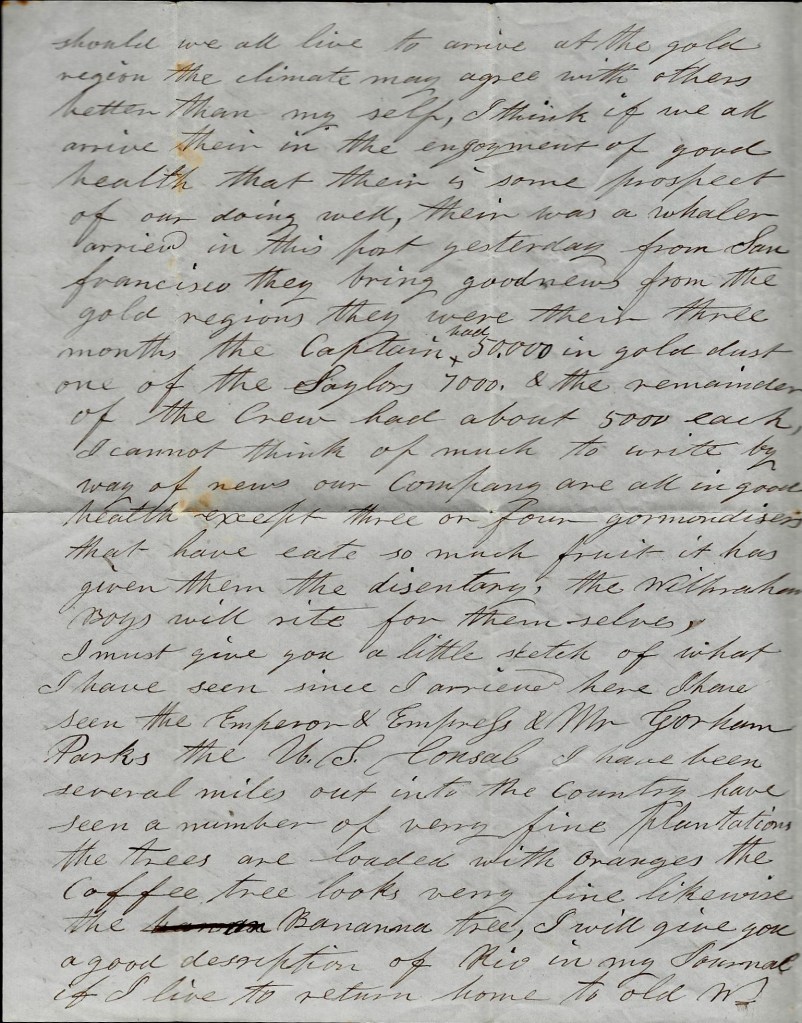 should we all live to arrive at the gold
region the climate may agree with others
better than my self, I think if we all
arrive their in the enjoyment of good
health that their is some prospect
of our doing well, their was a whaler
arrievd in this port yesterday from San
francisco they bring good news from the
gold regions they were their three
months the Captain had 50.000 in gold dust
one of the Saylors 7000. & the remainder
of the Crew had about 5000 each,
I cannot think of much to write by
way of news our Company are all in good
health except three or four gormondisers
that have eate so much fruit it has
given them the disentary, the Wilbraham
Boys will rite for them selves,
I must give you a little sketch of what
I have seen since I arrieved here I have
seen the Emperor & Empress & Mr Gorham
Parks the U. S. Consal I have been
several miles out into the Country have
seen a number of verry fine Plantations
the trees are loaded with oranges the
Coffee tree looks verry fine likewise
the Bananna tree, I will give you
a good desription of Rio in my Journal
if I live to return home to old W